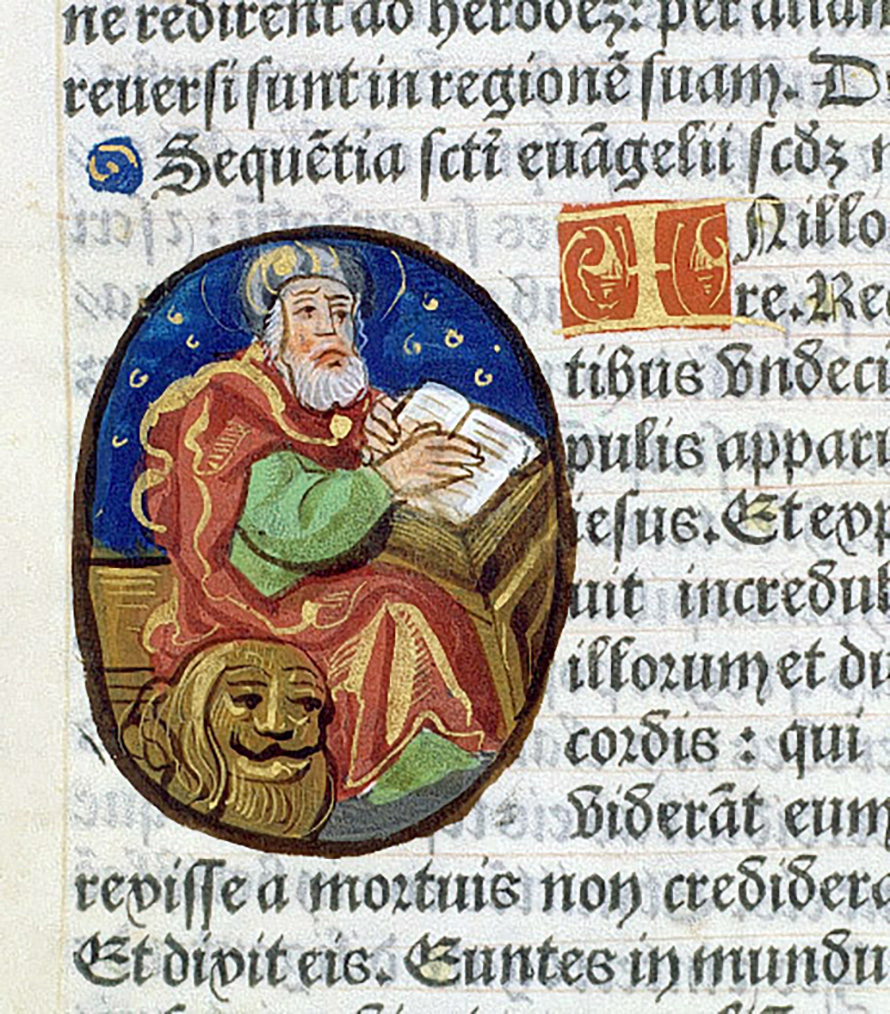 ne redirent ad herodeʒ: per aliam
reuersi sunt in regionē suam. D
Sequētia scti euāgelii scd̄ʒ
IN illo
re. Re
tibus vndeci
pulis appar
iesus. Et exp
uit incredul
illorum et du
cordis : qui
viderāt eum
rexisse a mortuis non credider
Et dixit eis. Euntes in mundu